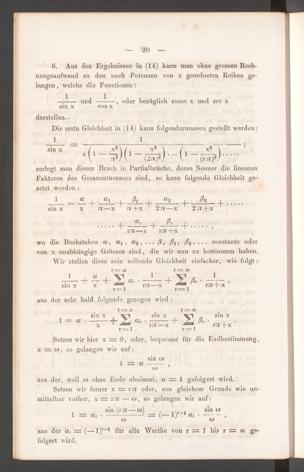 — 20 —
6. Aus den Ergebnissen in (14) kann man ohne grossen Rech-
nungsaufwand zu den nach Potenzen von x geordneten Reihen ge-
langen, welche die Functionen:
1/sin x und 1/cos x, oder bezüglich cosec x und sec x
darstellen.
Die erste Gleichheit in (14) kann folgendermassen gestellt werden:
1/sin x = 1/(x(1 − x²/π²)(1 − x²/(2π)²)....(1 − x²/(rπ)²).....;
zerlegt man diesen Bruch in Partialbrüche, deren Nenner die linearen
Faktoren des Gesammtnenners sind, so kann folgende Gleichheit ge-
setzt werden:
1/sin x = α/x + α₁/(π−x) + β₁/(π+x) + α₂/(2π−x) + β₂/(2π+x) + .....
..... + αᵣ/(rπ−x) + βᵣ/(rπ+x) + .....,
wo die Buchstaben α, α₁, α₂, ... β, β₁, β₂, ... constante oder
von x unabhängige Grössen sind, die wir nun zu bestimmen haben.
Wir stellen diese sein sollende Gleichheit einfacher, wie folgt:
1/sin x = α/x + Σ(r=1 bis r=∞) αᵣ · 1/(rπ−x) + Σ(r=1 bis r=∞) βᵣ · 1/(rπ+x),
aus der sehr bald folgende gezogen wird:
1 = α · sin x/x + Σ(r=1 bis r=∞) αᵣ · sin x/(rπ−x) + Σ(r=1 bis r=∞) βᵣ · sin x/(rπ+x).
Setzen wir hier x = 0, oder, bequemer für die Endbestimmung,
x = ω, so gelangen wir auf:
1 = α sin ω/ω,
aus der, weil ω ohne Ende abnimmt, α = 1 gefolgert wird.
Setzen wir ferner x = rπ oder, aus gleichem Grunde wie un-
mittelbar vorher, x = rπ − ω, so gelangen wir auf:
1 = αᵣ · sin (rπ−ω)/ω = (−1)ʳ⁻¹ αᵣ · sin ω/ω,
aus der αᵣ = (−1)ʳ⁻¹ für alle Werthe von r = 1 bis r = ∞ ge-
folgert wird.